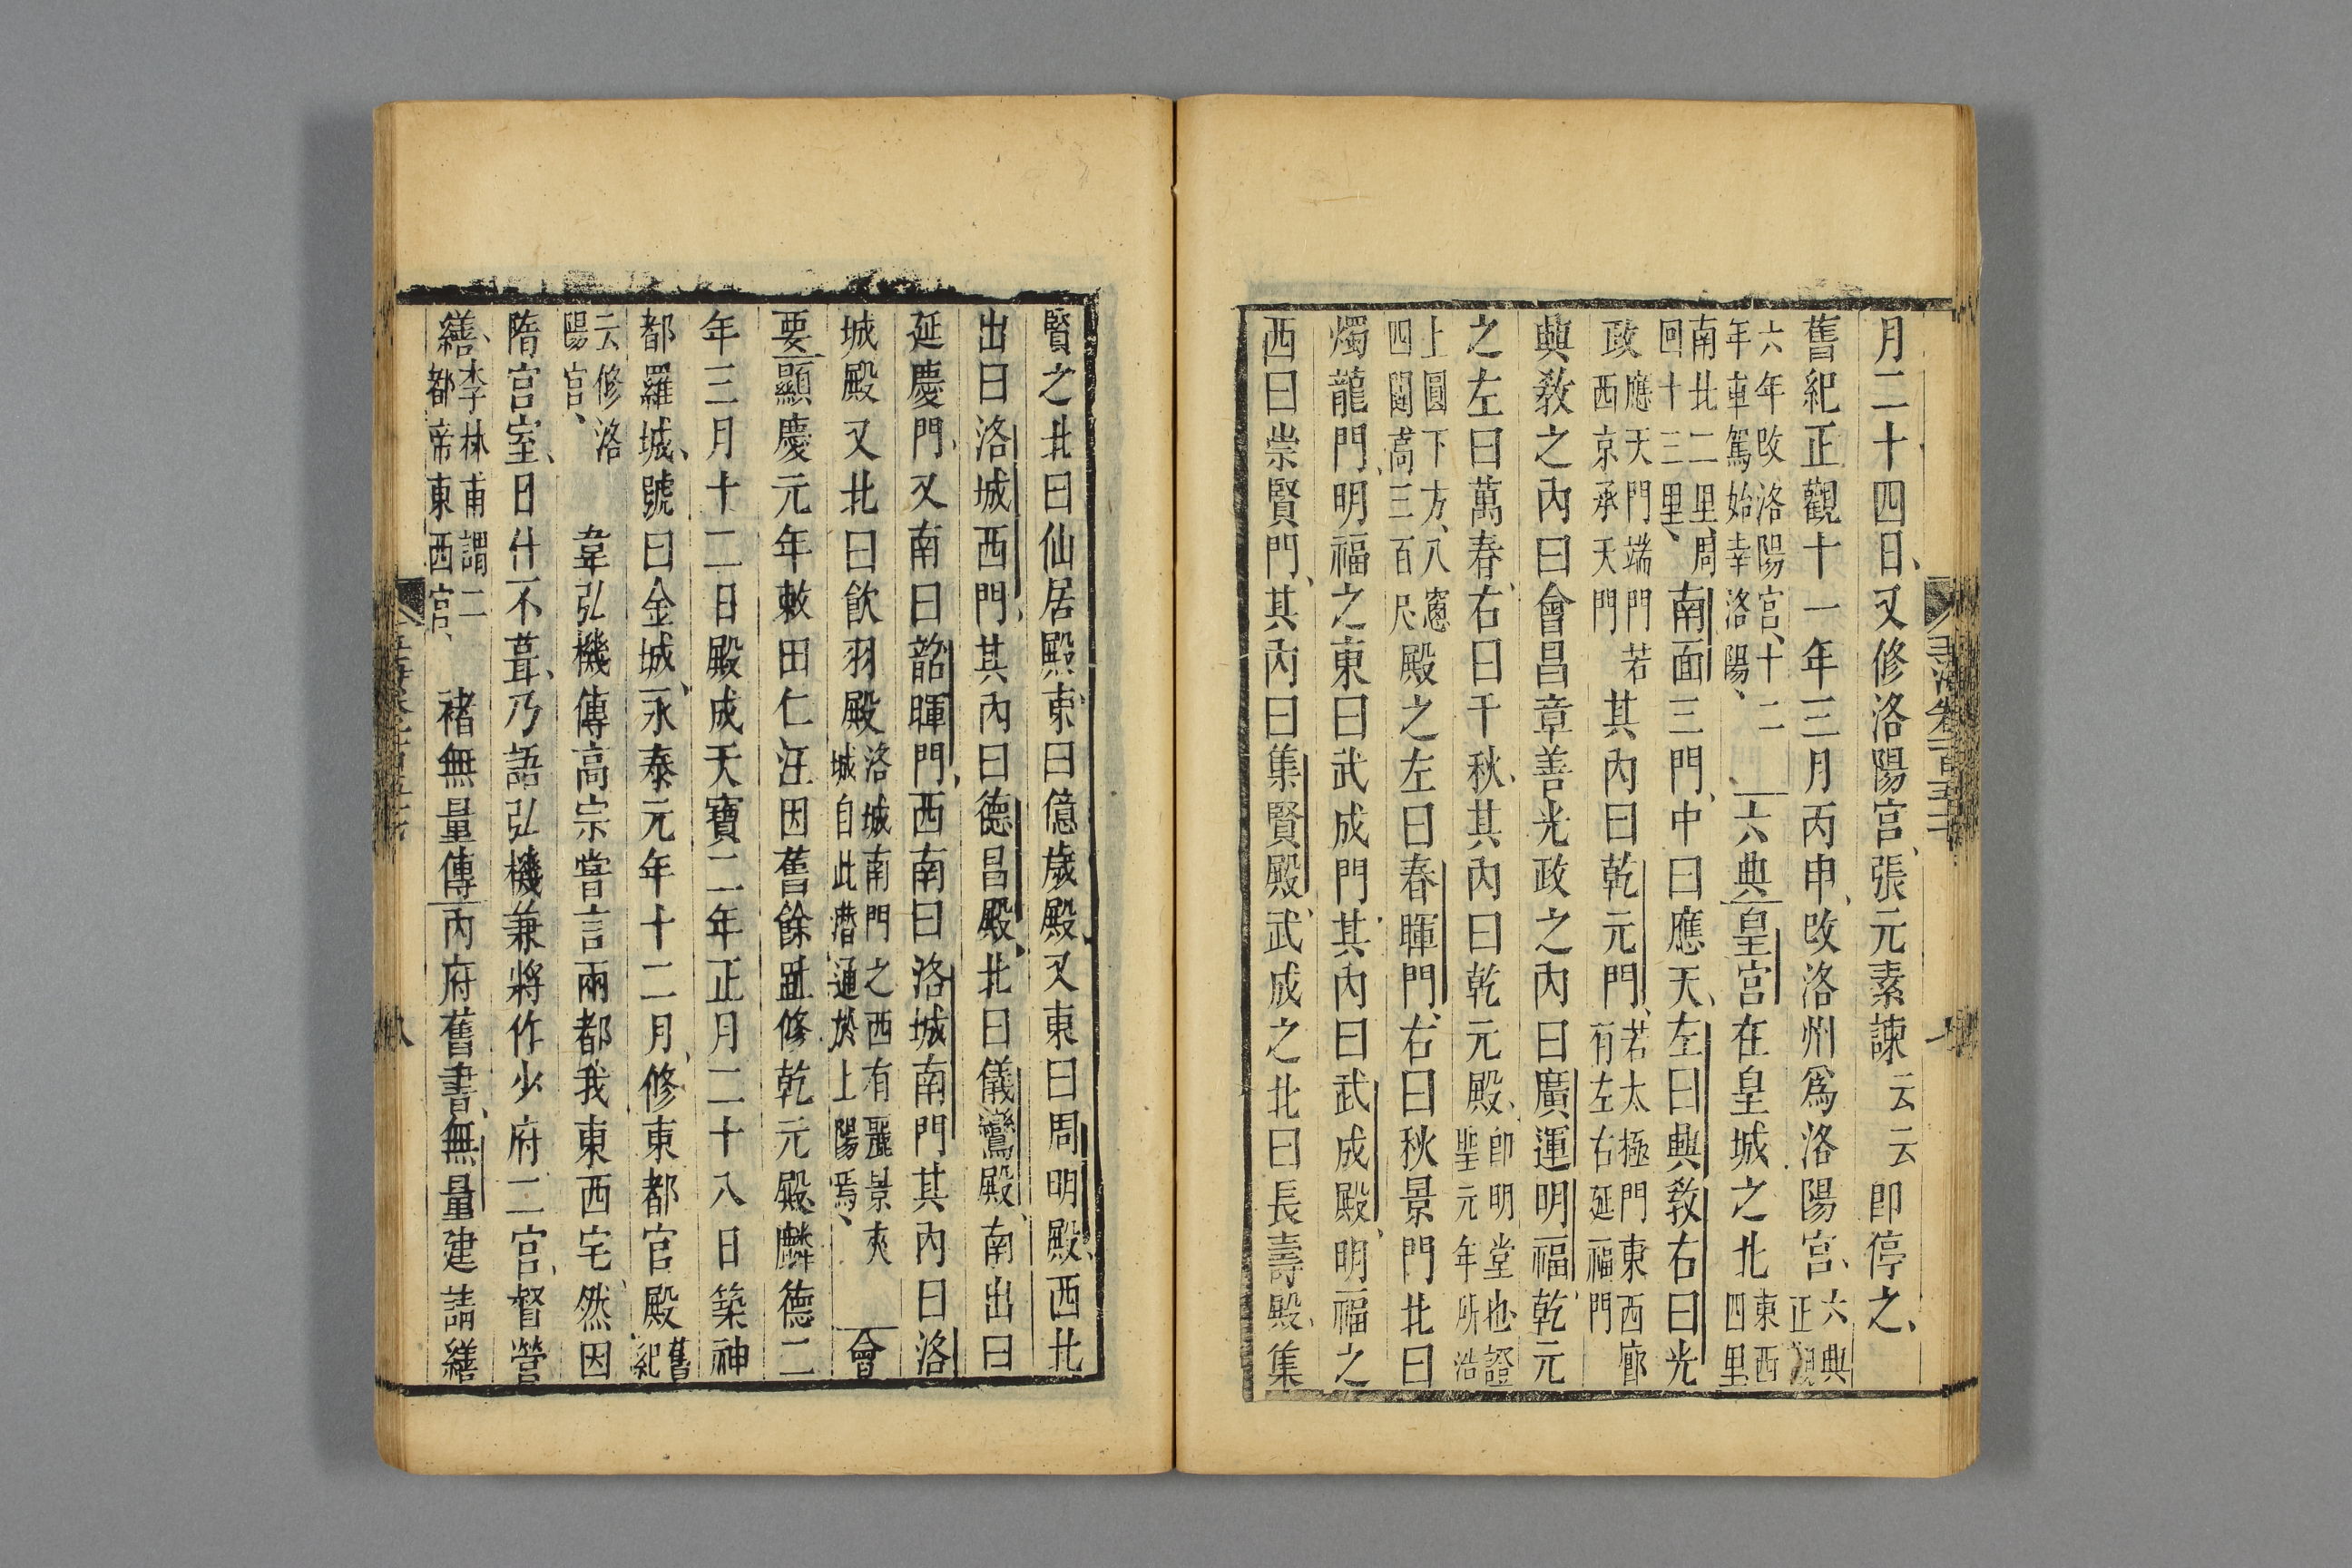 月二十四日又修洛陽宮張元素諫云云即停之
舊紀正觀十一年三月丙申改洛州爲洛陽宮六典正觀
六年改洛陽宮十二年車駕始幸洛陽六典皇宮在皇城之北東西四里
南北二里周回十三里南面三門中曰應天左曰興敎右曰光
政應天門端門若西京承天門其內曰乾元門若太極門東西廊有左右延福門
興敎之內曰會昌章善光政之內曰廣運明福乾元
之左曰萬春右曰千秋其內曰乾元殿即明堂也證聖元年所造
上圓下方八窻四闥高三百尺殿之左曰春暉門右曰秋景門北曰
燭龍門明福之東曰武成門其內曰武成殿明福之
西曰崇賢門其內曰集賢殿武成之北曰長壽殿集
賢之北曰仙居殿東曰億歲殿又東曰周明殿西北
出曰洛城西門其內曰德昌殿北曰儀鸞殿南出曰
延慶門又南曰韶暉門西南曰洛城南門其內曰洛
城殿又北曰飲羽殿洛城南門之西有麗景夾城自此潛通於上陽焉會
要顯慶元年敕田仁汪因舊餘趾修乾元殿麟德二
年三月十二日殿成天寶二年正月二十八日築神
都羅城號曰金城永泰元年十二月修東都官殿舊紀
云修洛陽宮韋弘機傳高宗嘗言兩都我東西宅然因
隋宮室日什不葺乃語弘機兼將作少府二官督營
繕李林甫謂二都帝東西宮褚無量傳內府舊書無量建請繕